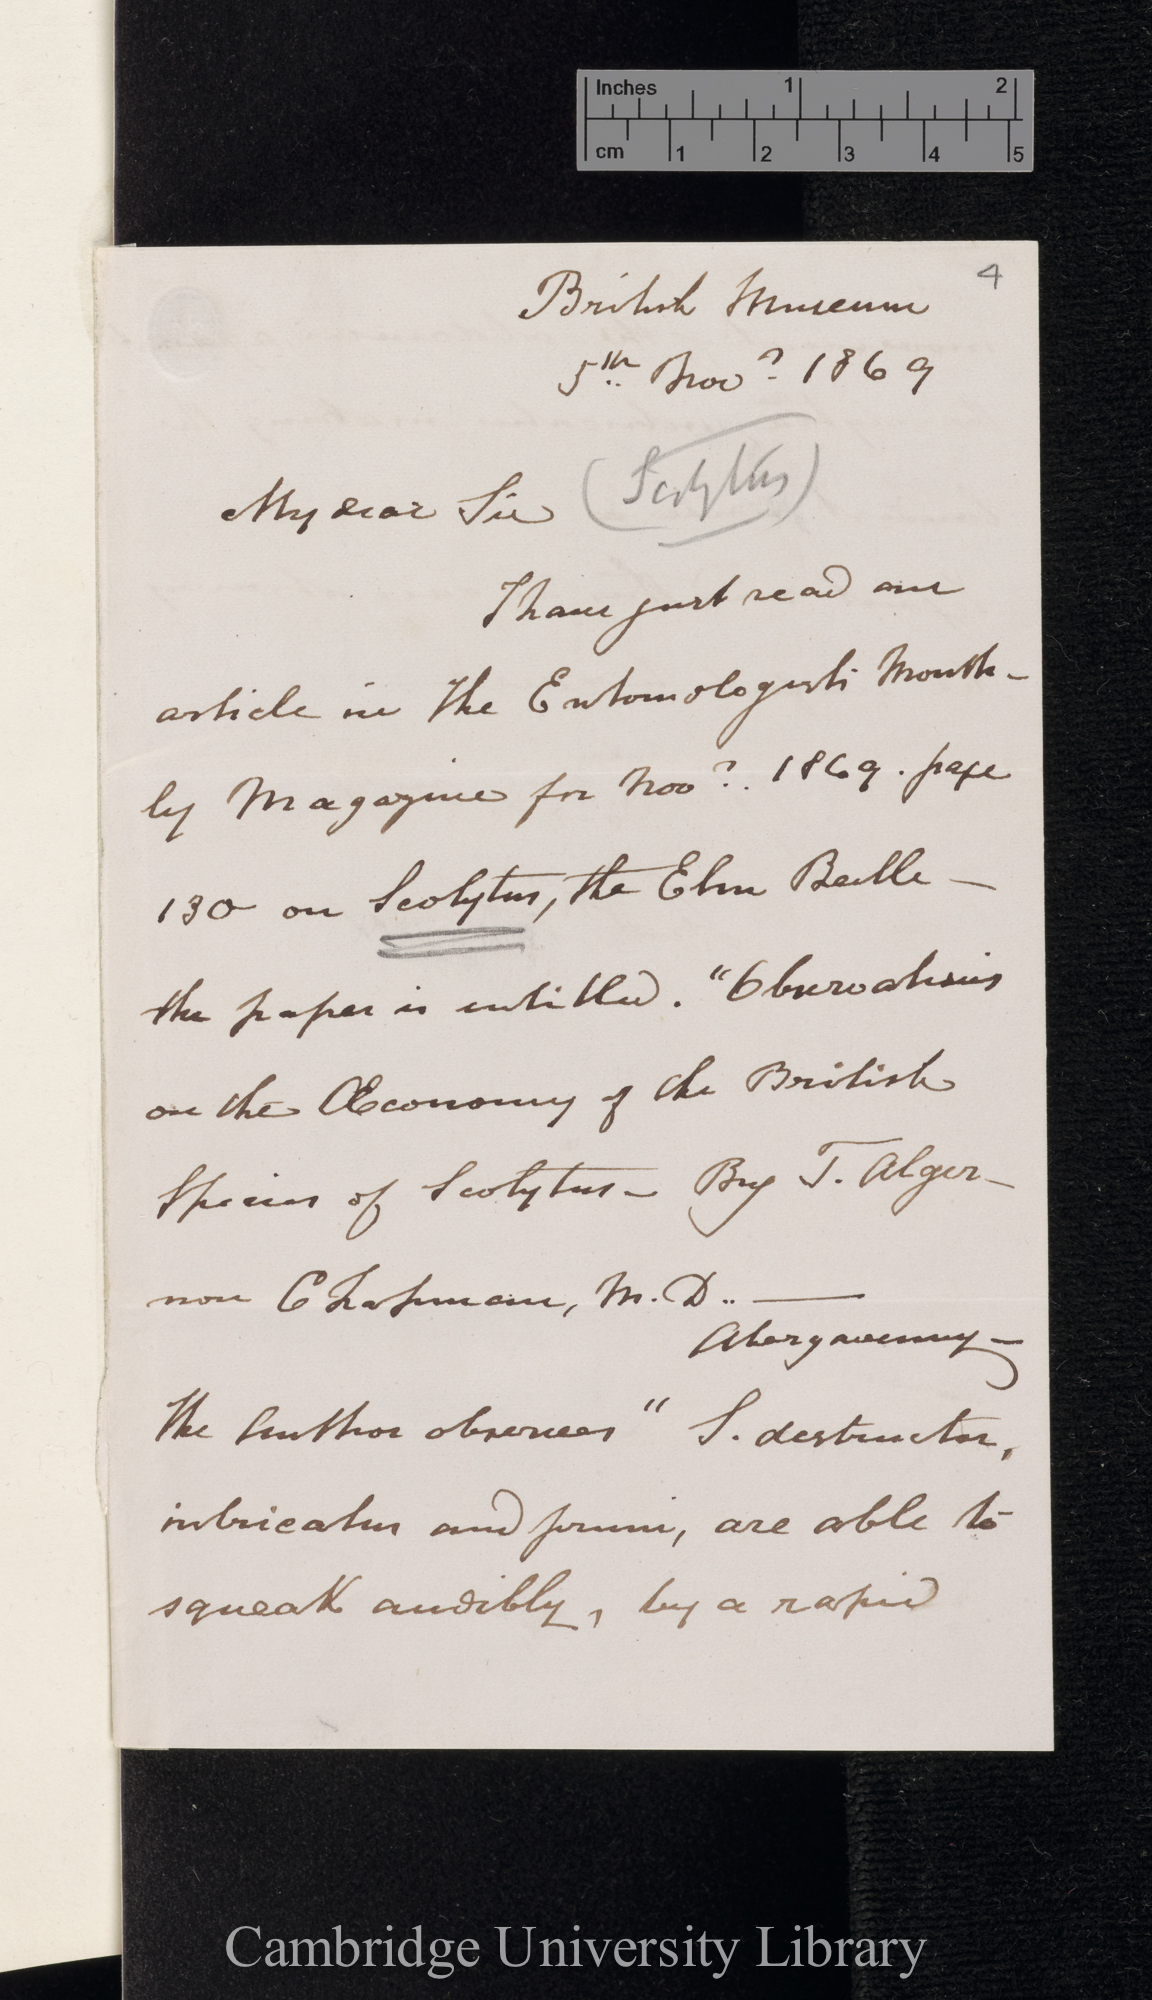 Inches 1 2
cm 1 2 3 4 5
4
British Museum
5th Novr. 1869
(Scolytus)
My dear Sir
I have just read an
article in the Entomologists Month-
ly Magazine for Novr. 1869. page
130 on Scolytus, the Elm Beetle —
the paper is entitled. "Observations
on the Œconomy of the British
Species of Scolytus — By T. Alger-
non Chapman, M.D.. —
Abergavenny —
The Author observes " S. destructor,
intricatus and pruni, are able to
squeak audibly, by a rapid
Cambridge University Library